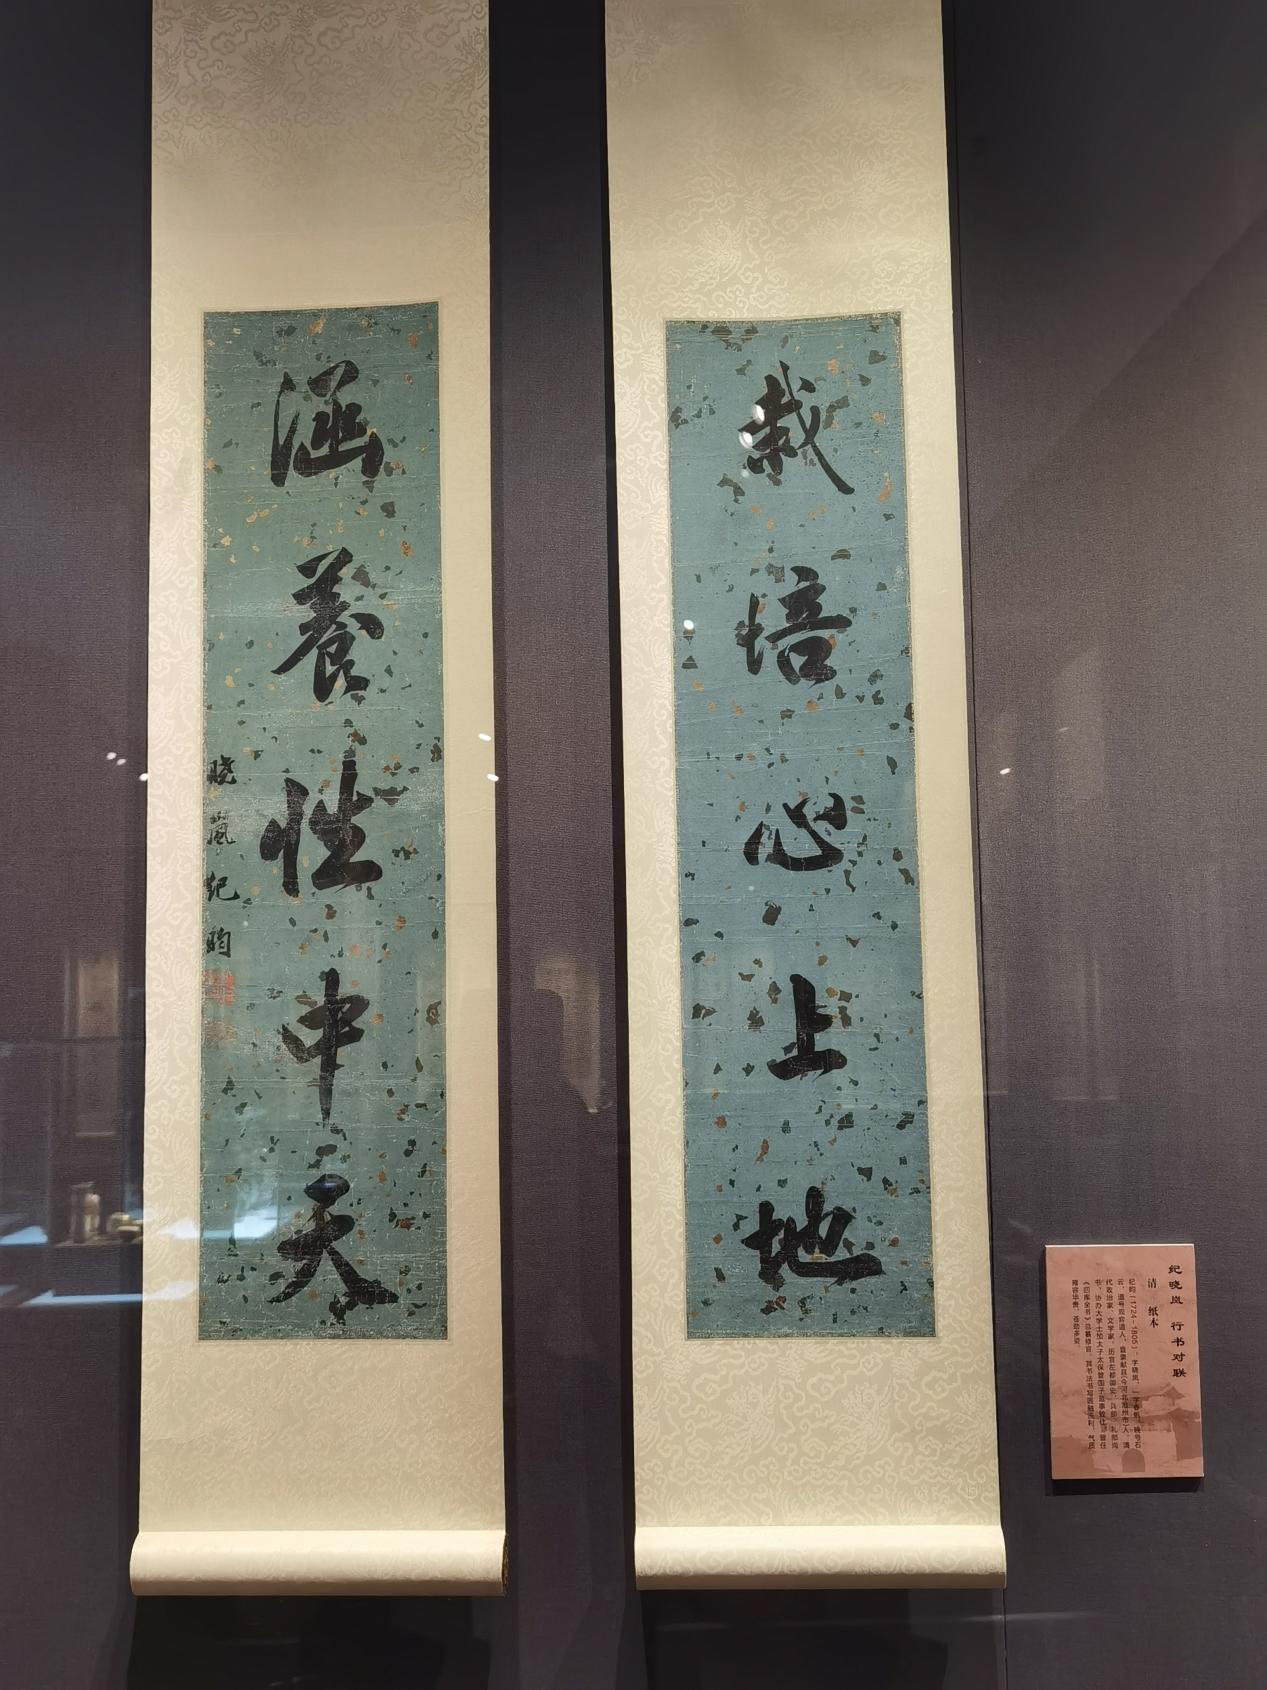 栽培心上地
涵養性中天
晓嵐纪昀
纪晓岚 行书对联
清 纸本
纪昀（1724-1805），字晓岚，一字春帆，晚号石
云，道号观弈道人，直隶献县（今河北沧州市）人，清
代政治家、文学家，历官左都御史，兵部、礼部尚
书，协办大学士加太子太保管国子监事致仕，曾任
《四库全书》总纂修官。其书法书写
雍容华贵，苍劲多姿。